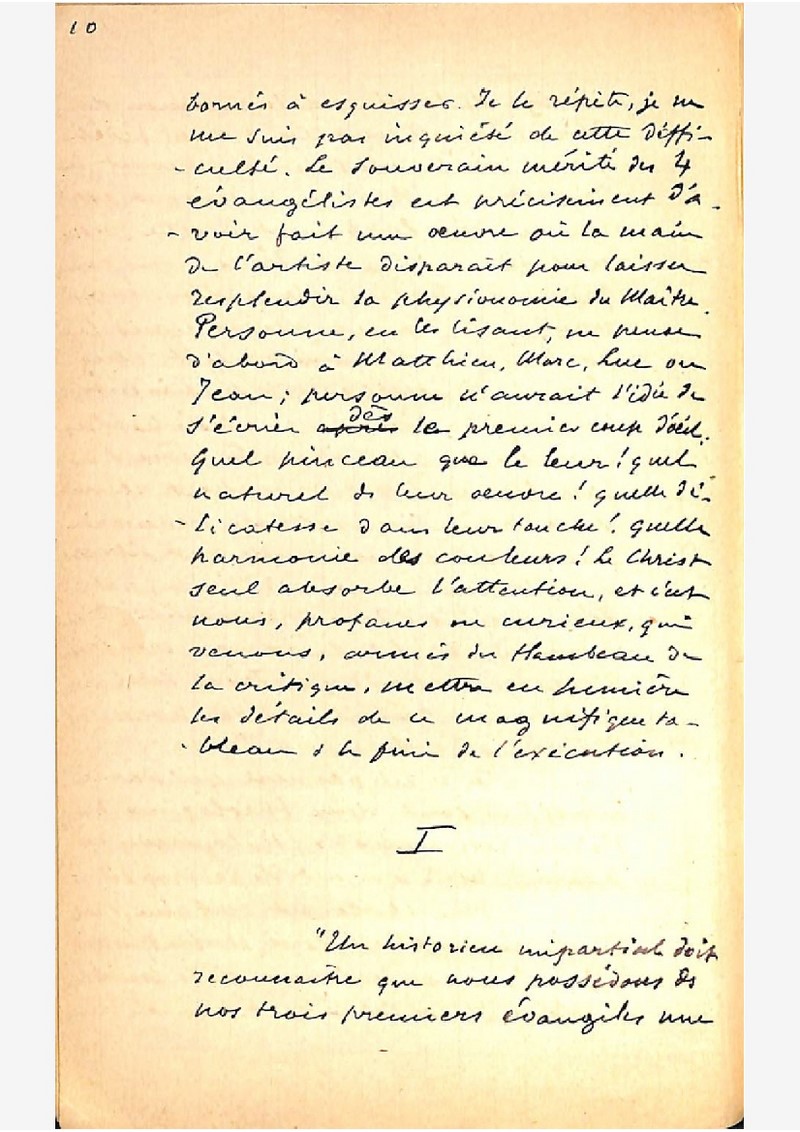 10
bornés à esquisser. Je le répète, je ne
me suis pas inquiété de cette diffi-
- culté. Le souverain mérite des 4
évangélistes est précisément d'a -
- voir fait une œuvre où la main
de l'artiste disparaît pour laisser
resplendir la physionomie du Maître.
Personne, en les lisant, ne pense
d'abord à Matthieu, Marc, Luc ou
Jean ; personne n'aurait l'idée de
s'écrier après dès le premier coup d'œil.
Quel pinceau que le leur ! quel
naturel de leur œuvre ! quelle dé-
- licatesse dans leur touche ! quelle
harmonie des couleurs ! Le Christ
seul absorbe l'attention, et c'est
nous, profanes ou curieux, qui
venons, armés du flambeau de
la critique, mettre en lumière
les détails de ce magnifique ta-
- bleau & le fini de l'exécution.
I
"Un historien impartial doit
reconnaître que nous possédons ds
nos trois premiers évangiles une